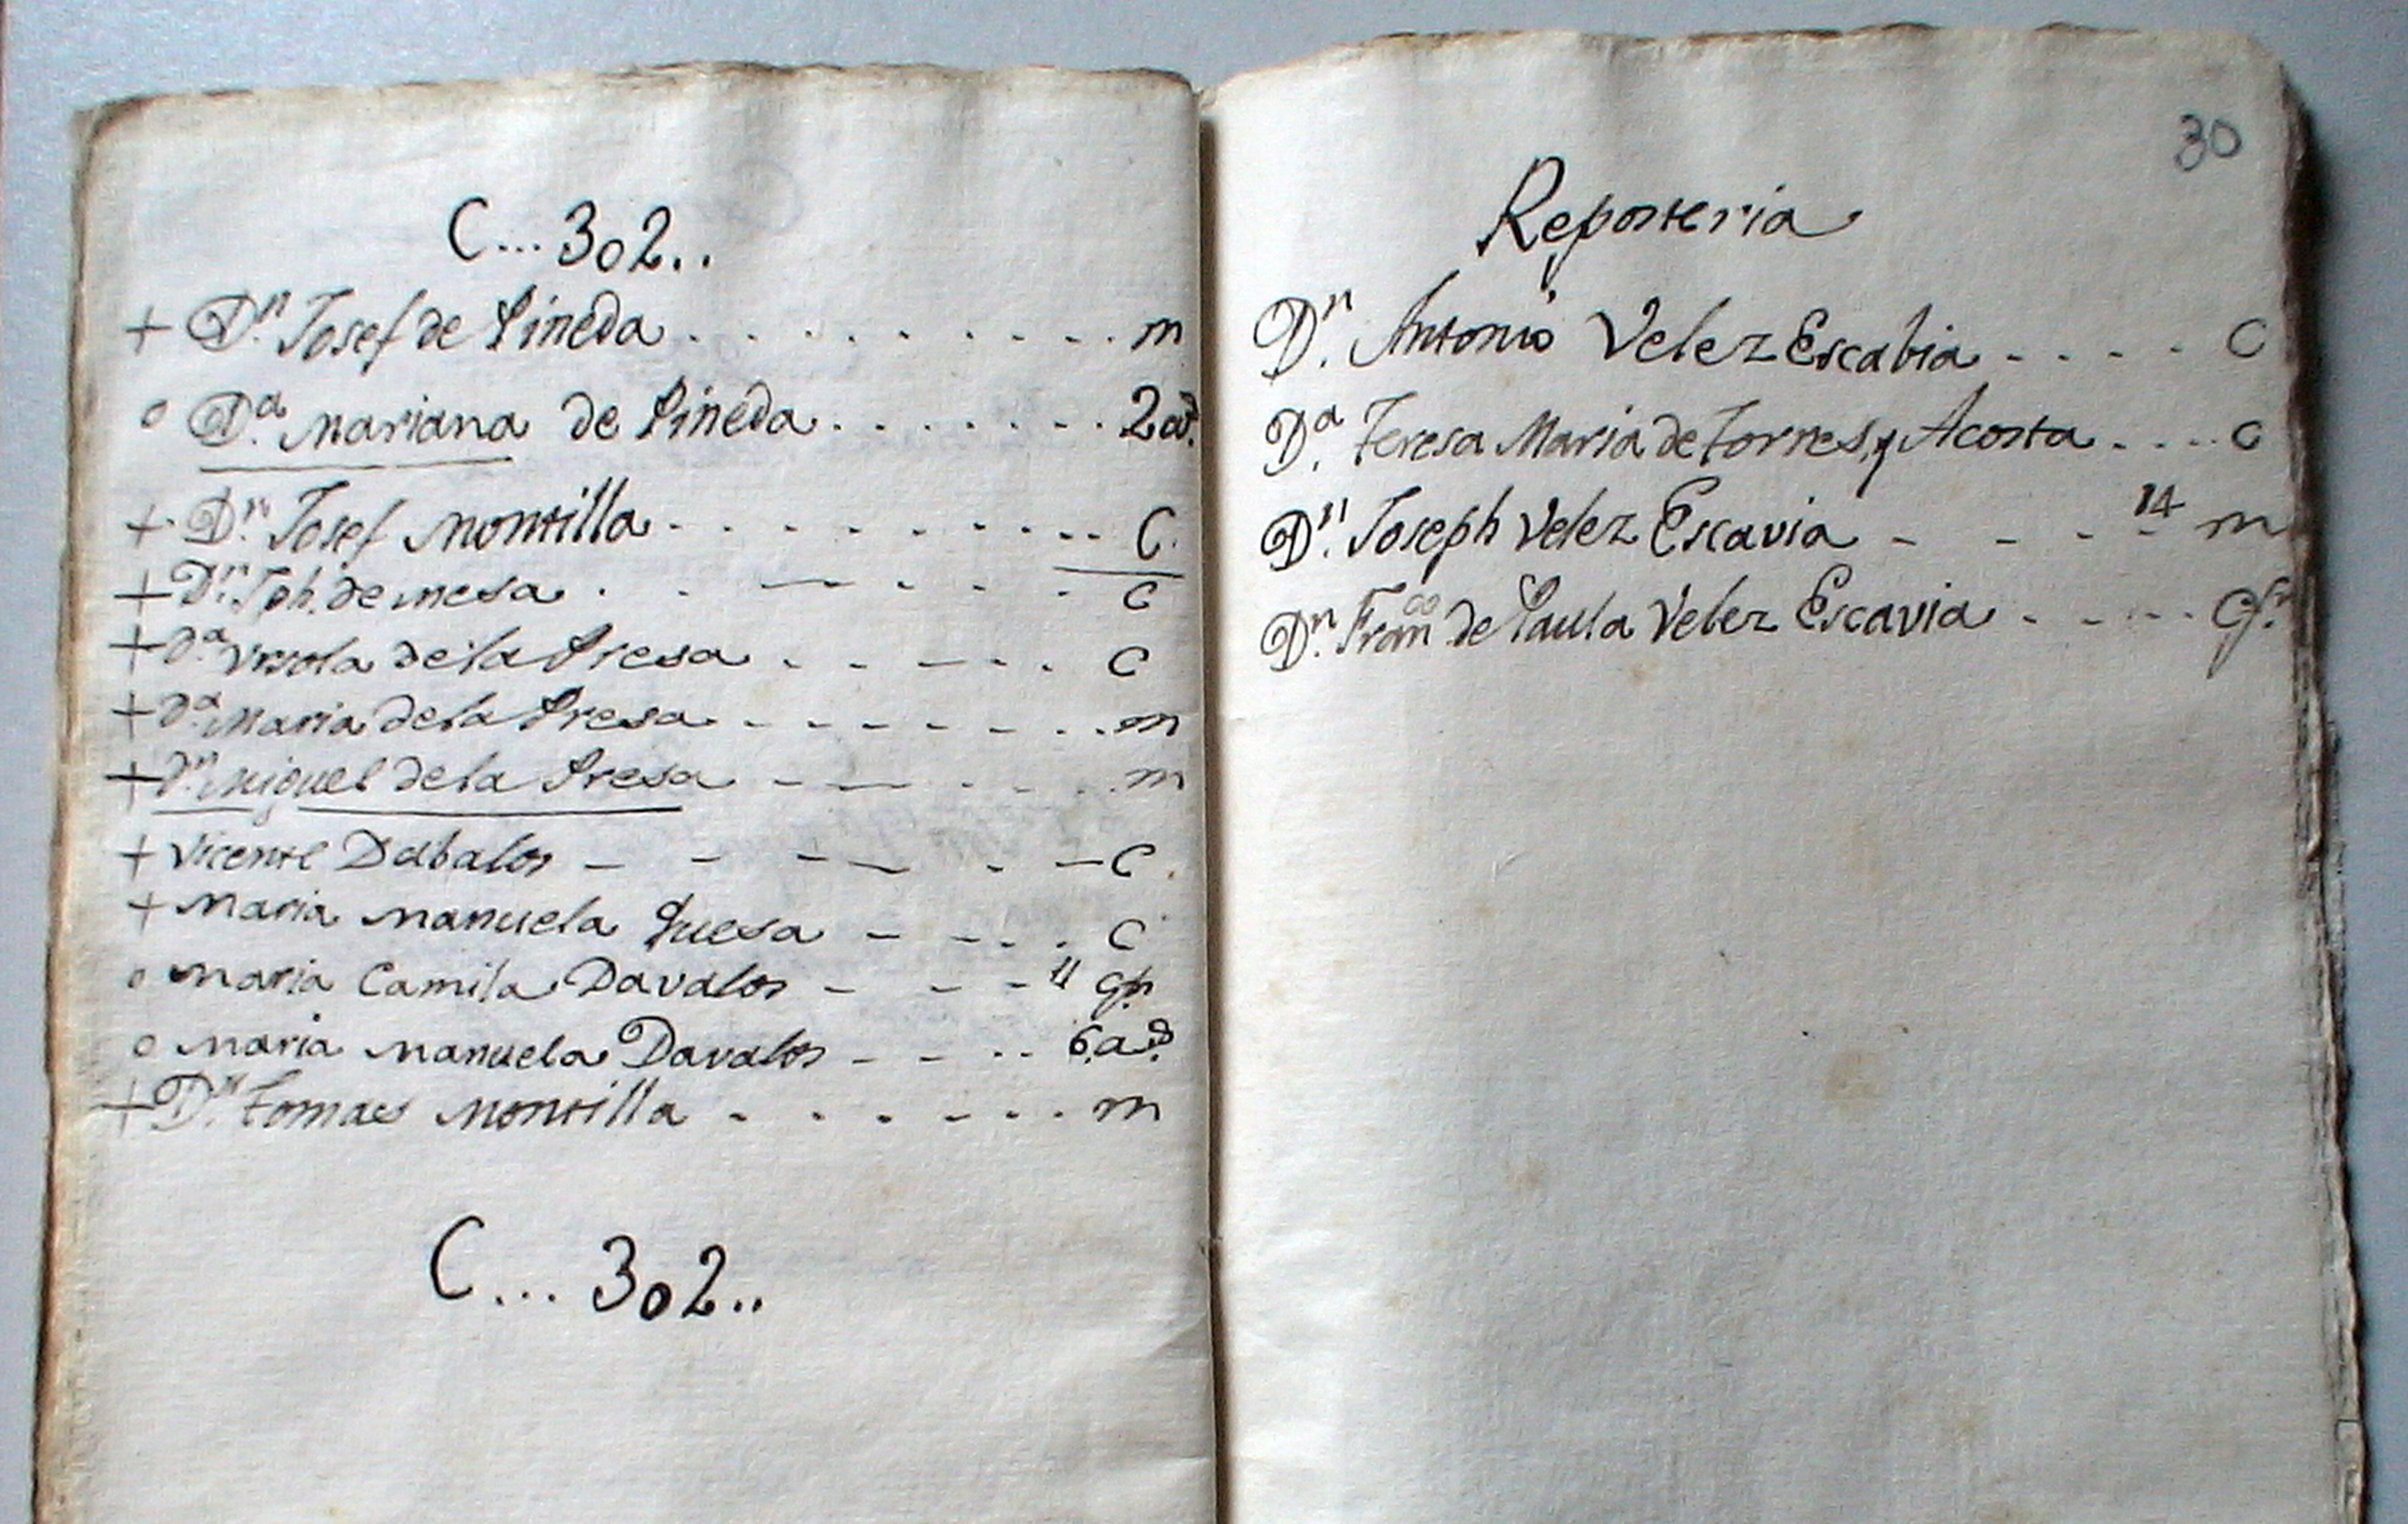 C...302..
+ Dn. Josef de Pineda . . . . . . . . . m
o Da. Mariana de Pineda . . . . . . . 2 ad.
+ Dn. Josef Montilla . . . . . . . . . C.
+ Dn. Jph. de mesa . . — - - . C
+ Da. Vrsola de la Presa . . - - . C
+ Da. Maria de la Presa - - - - - . . m
+ Dn. Miguel de la Presa - — . . . m
+ Vicente Dabalos - - - — . - C.
+ Maria Manuela - - . . C
o Maria Camila Davalos - - - 11 Cp.
o Maria Manuela Davalos - - . . 6. ad.
+ Dn. Tomas Montilla - . . - . . m
C... 302..
30
Reposteria
Dn. Antonio Velez Escabia . . . . C
Da. Teresa Maria de Torres, y Acosta . . . . C
Dn. Joseph Velez Escavia - - - - 14 m
Dn. Franco de Paula Velez Escavia . . . . Cf.